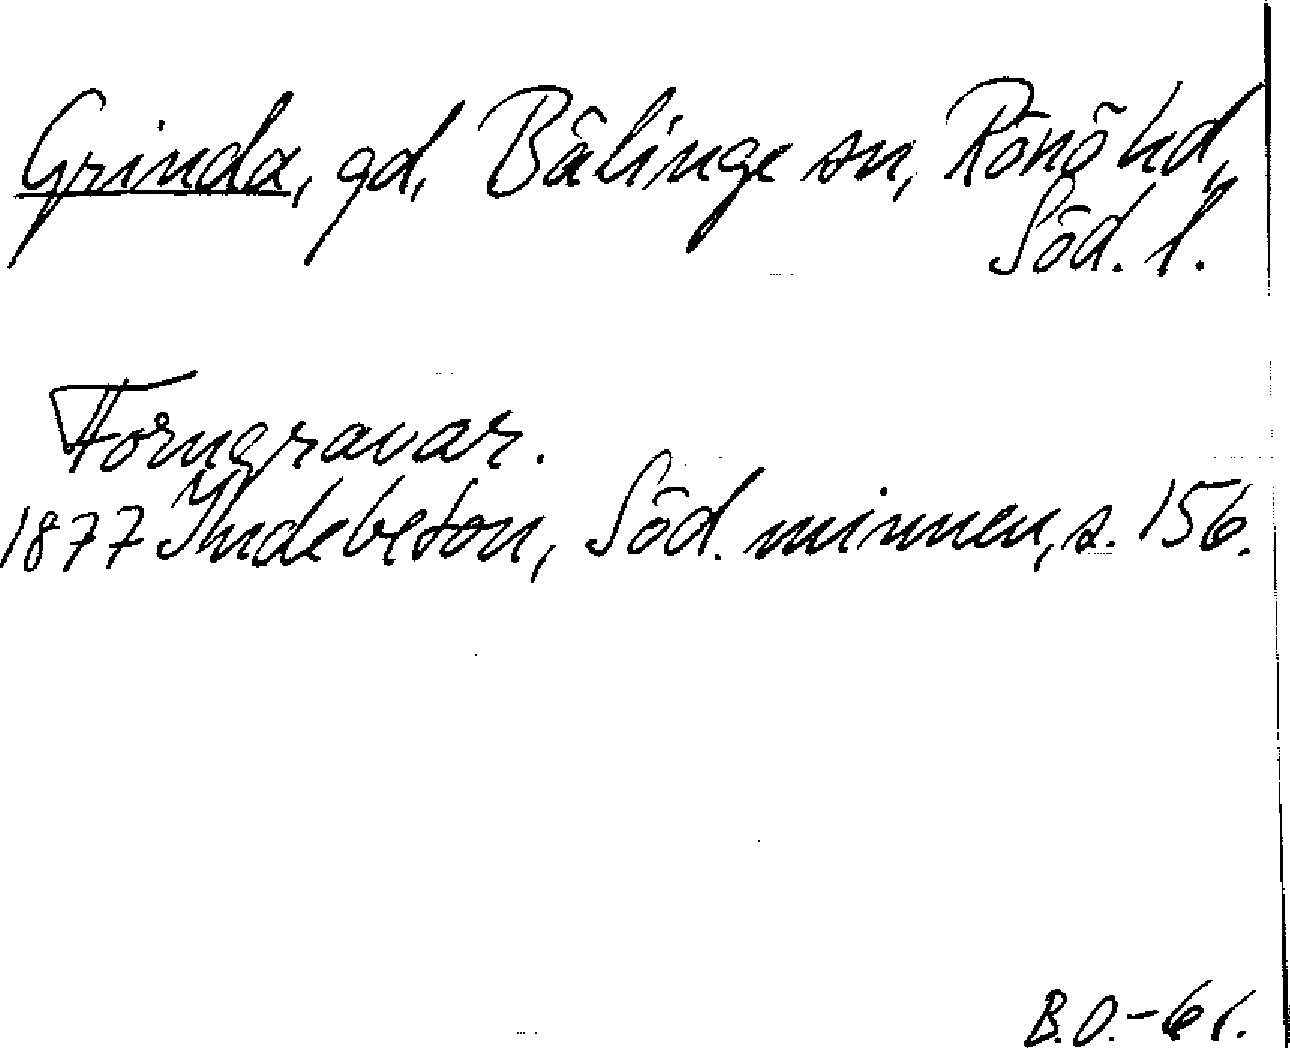 Grinda, gd, Bälinge sn, Rönö hd,
Söd. l.
Forngravar.
1877 Indebetou, Söd. minnen, s. 156.
B.O.-61.